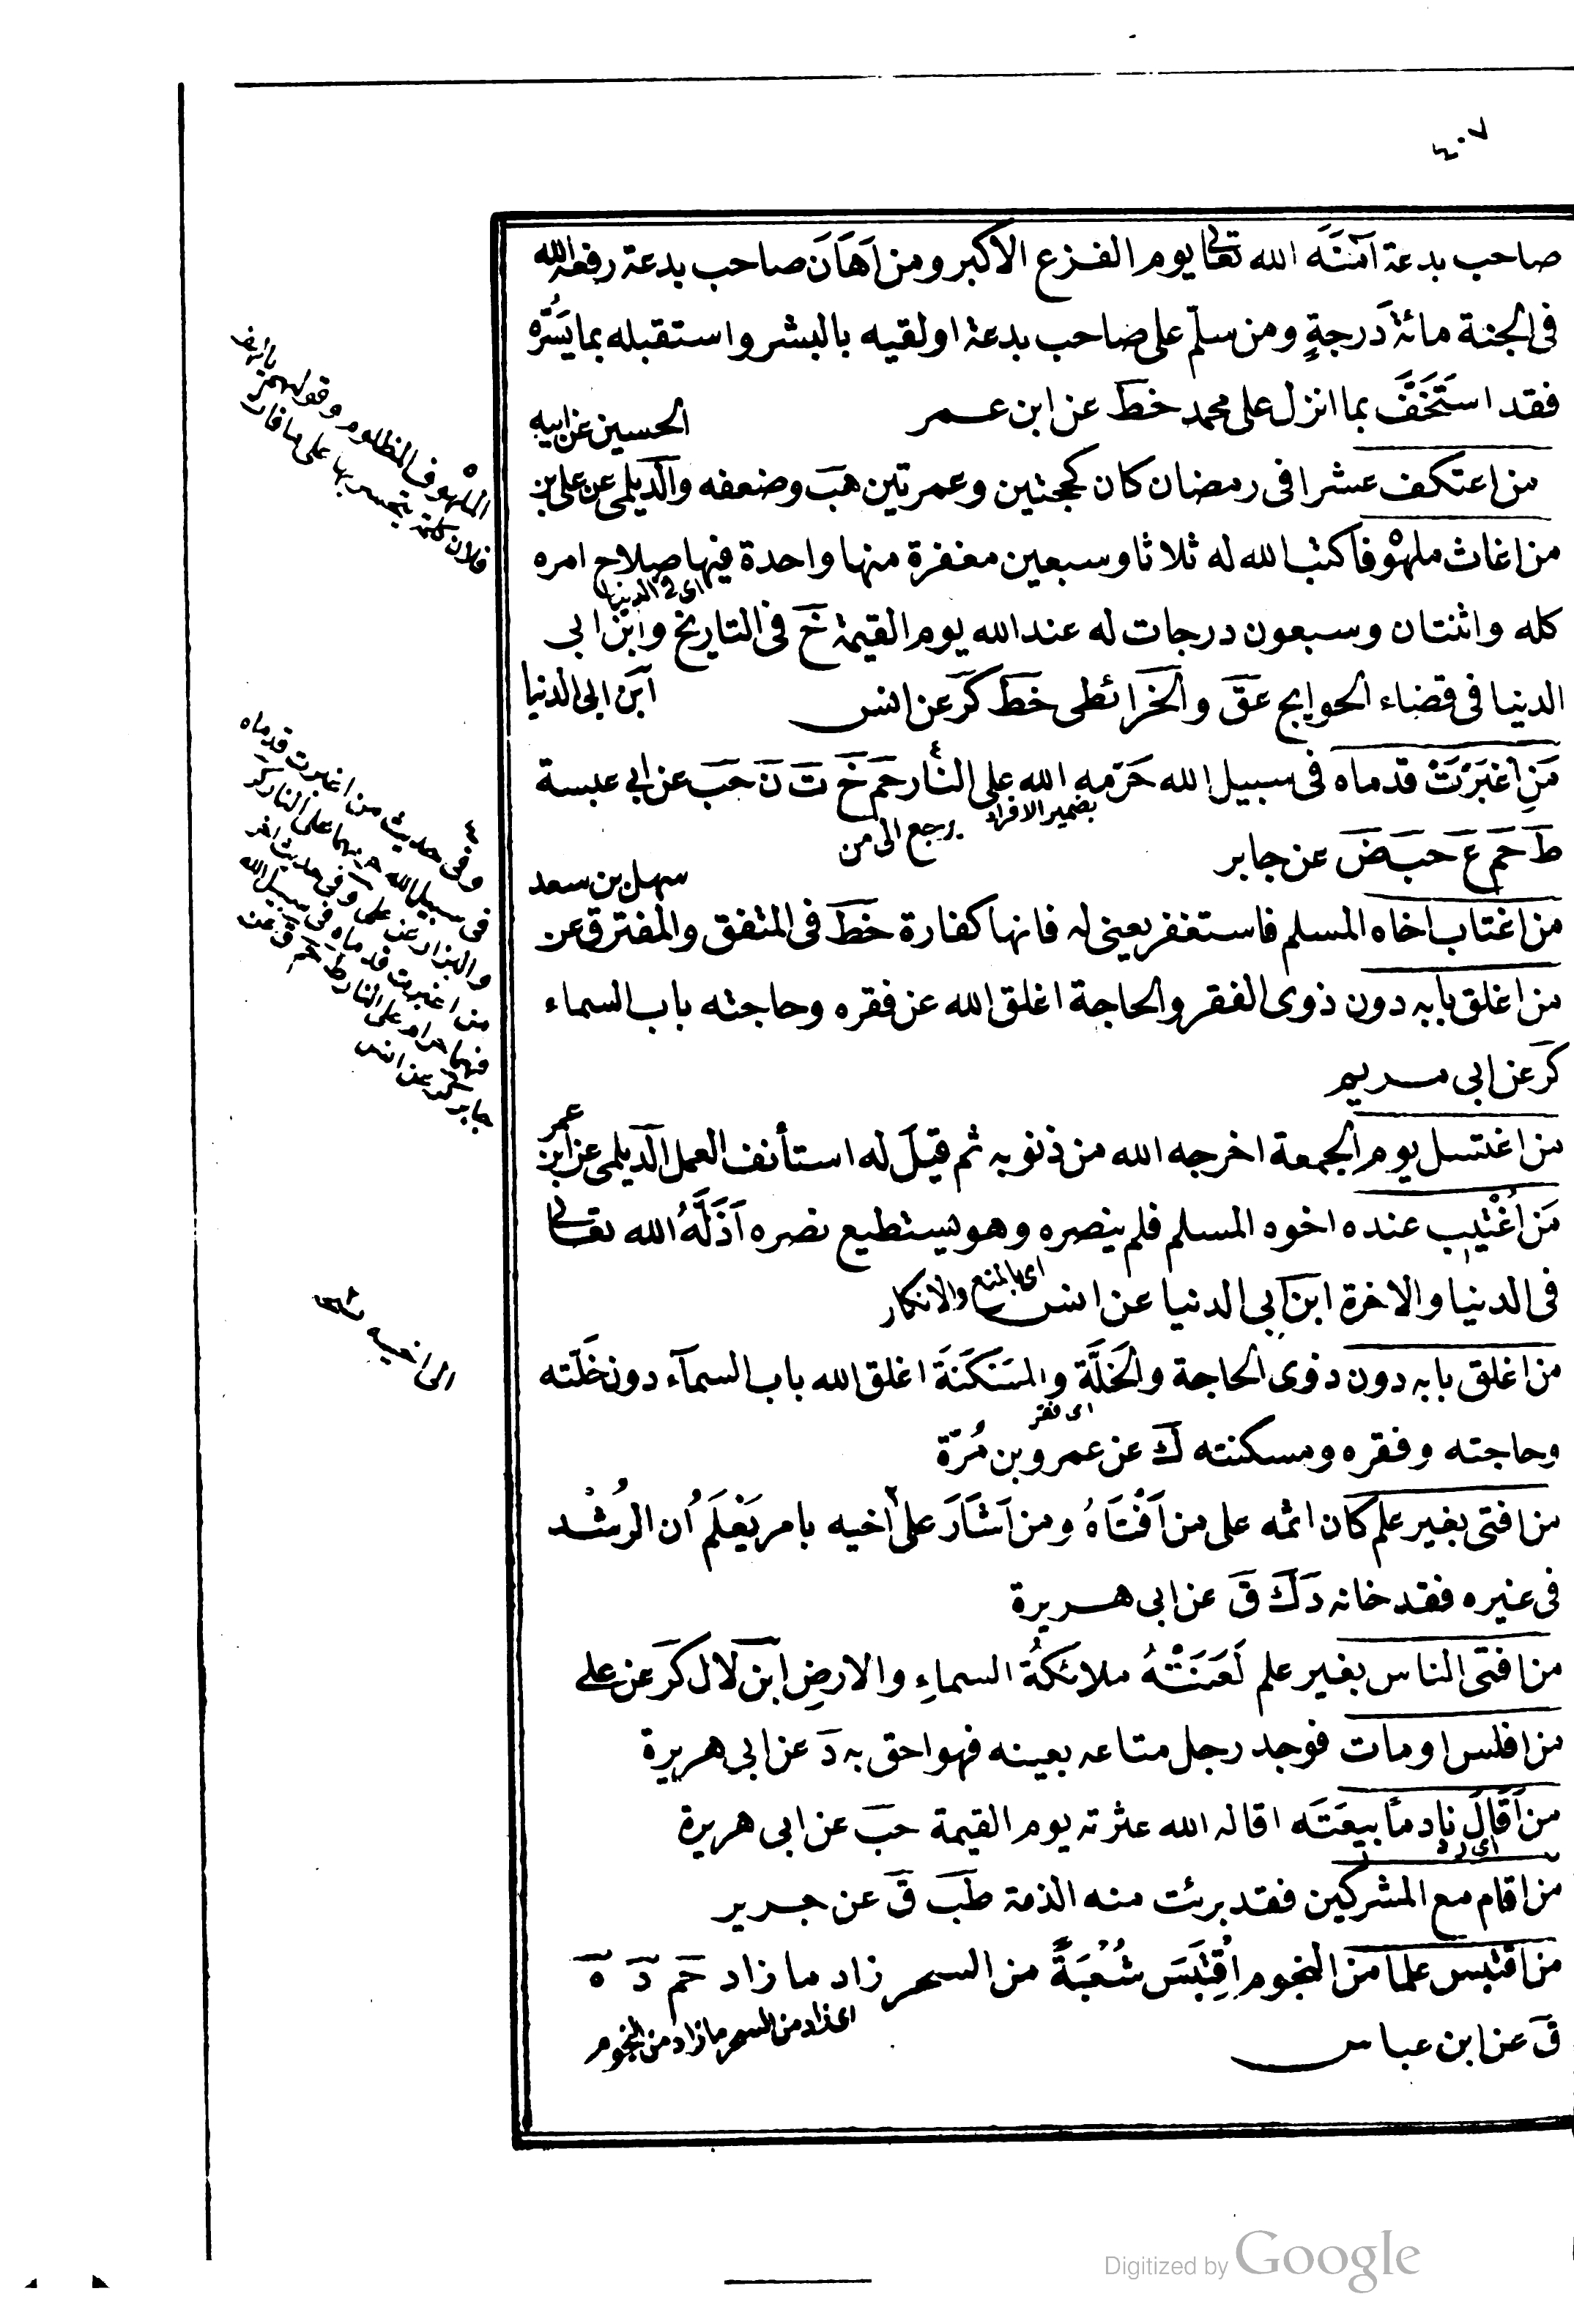 ٤٠٧
صاحب بدعة آمَنَهُ الله تعالى يوم الفزع الاكبر ومن اَهَانَ صاحب بدعة رفعه الله
فى الجنة مائة دَرجةٍ ومن سلّم على صاحب بدعة اولقيه بالبشر واستقبله بما يَسُرّه
فقد استَخَفَّ بما انزل على محمد خط عن ابن عمر
الحسين عن ابيه
من اعتكف عشرا فى رمضان كان كحجتين وعمرتين هب وضعفه والديلمى عن على بن
من اغاث ملهوفا كتب الله له ثلاثا وسبعين مغفرة منها واحدة فيها صلاح امره
اى فى الدنيا
كله واثنتان وسبعون درجات له عند الله يوم القيمة خ فى التاريخ وابن ابى
الدنيا فى قضاء الحوايج عق والخرائطى خط كر عن انس
ابن ابى الدنيا
مَنِ اغْبَرَّتْ قدماه فى سبيل الله حَرّمه الله على النار ٤ حم خ ت ن حب عن ابى عبسة
بضمير الافراد يرجع الى من
ط حم ع حب ض عن جابر
سهل بن سعد
من اغتاب اخاه المسلم فاستغفر يعنى له فانها كفارة خط فى المتفق والمفترق عن
من اغلق بابه دون ذوى الفقر والحاجة اغلق الله عن فقره وحاجته باب السماء
كر عن ابى مريم
من اغتسل يوم الجمعة اخرجه الله من ذنوبه ثم قيل له استأنف العمل الديلمى عن ابن
عمر
مَن اُغْتِيب عنده اخوه المسلم فلم ينصره وهو يستطيع نصره اَذَلَّهُ الله تعالى
فى الدنيا والاخرة ابن ابى الدنيا عن انس
اى بالمنع والانكار
من اغلق بابه دون ذوى الحاجة والخَلَّة والمسَكَنَة اغلق الله باب السمآء دون خَلّته
اى فقر
وحاجته وفقره ومسكنته ك عن عمرو بن مُرّة
من افتى بغير علم كان اثمه على من اَفْتَاهُ ومن اَشَارَ على اخيه بامر يَعْلَمُ اَن الرُشْد
فى غيره فقد خانه د ك ق عن ابى هريرة
من افتى الناس بغير علم لَعَنَتْهُ ملائكةُ السماءِ والارضِ ابن لال كر عن على
من افلس اومات فوجد رجل متاعه بعينه فهو احق به د عن ابى هريرة
من اَقَالَ نادماً بيعَتَه اقاله الله عثرته يوم القيمة حب عن ابى هريرة
اى رد
من اقام مع المشركين فقد برئت منه الذمة طب ق عن جرير
من اقتبس علما من النجوم اِقْتَبَسَ شُعْبَةً من السحر زاد ما زاد حم د ه
ق عن ابن عباس
اى زاد من السحر ما زاد من النجوم
ه الملهوف المظلوم وقولهم يالهف
فلان كلمة يتحسر بها على ما فات
٤ وفى حديث من اغبرت قدماه
فى سبيل الله حرمهما على النار كر
والبزار عن على وفى حديث اخر
من اغبرت قدماه فى سبيل الله
فهما حرام على النار ط حم ق عن
جابر كر عن انس
الى اخيه